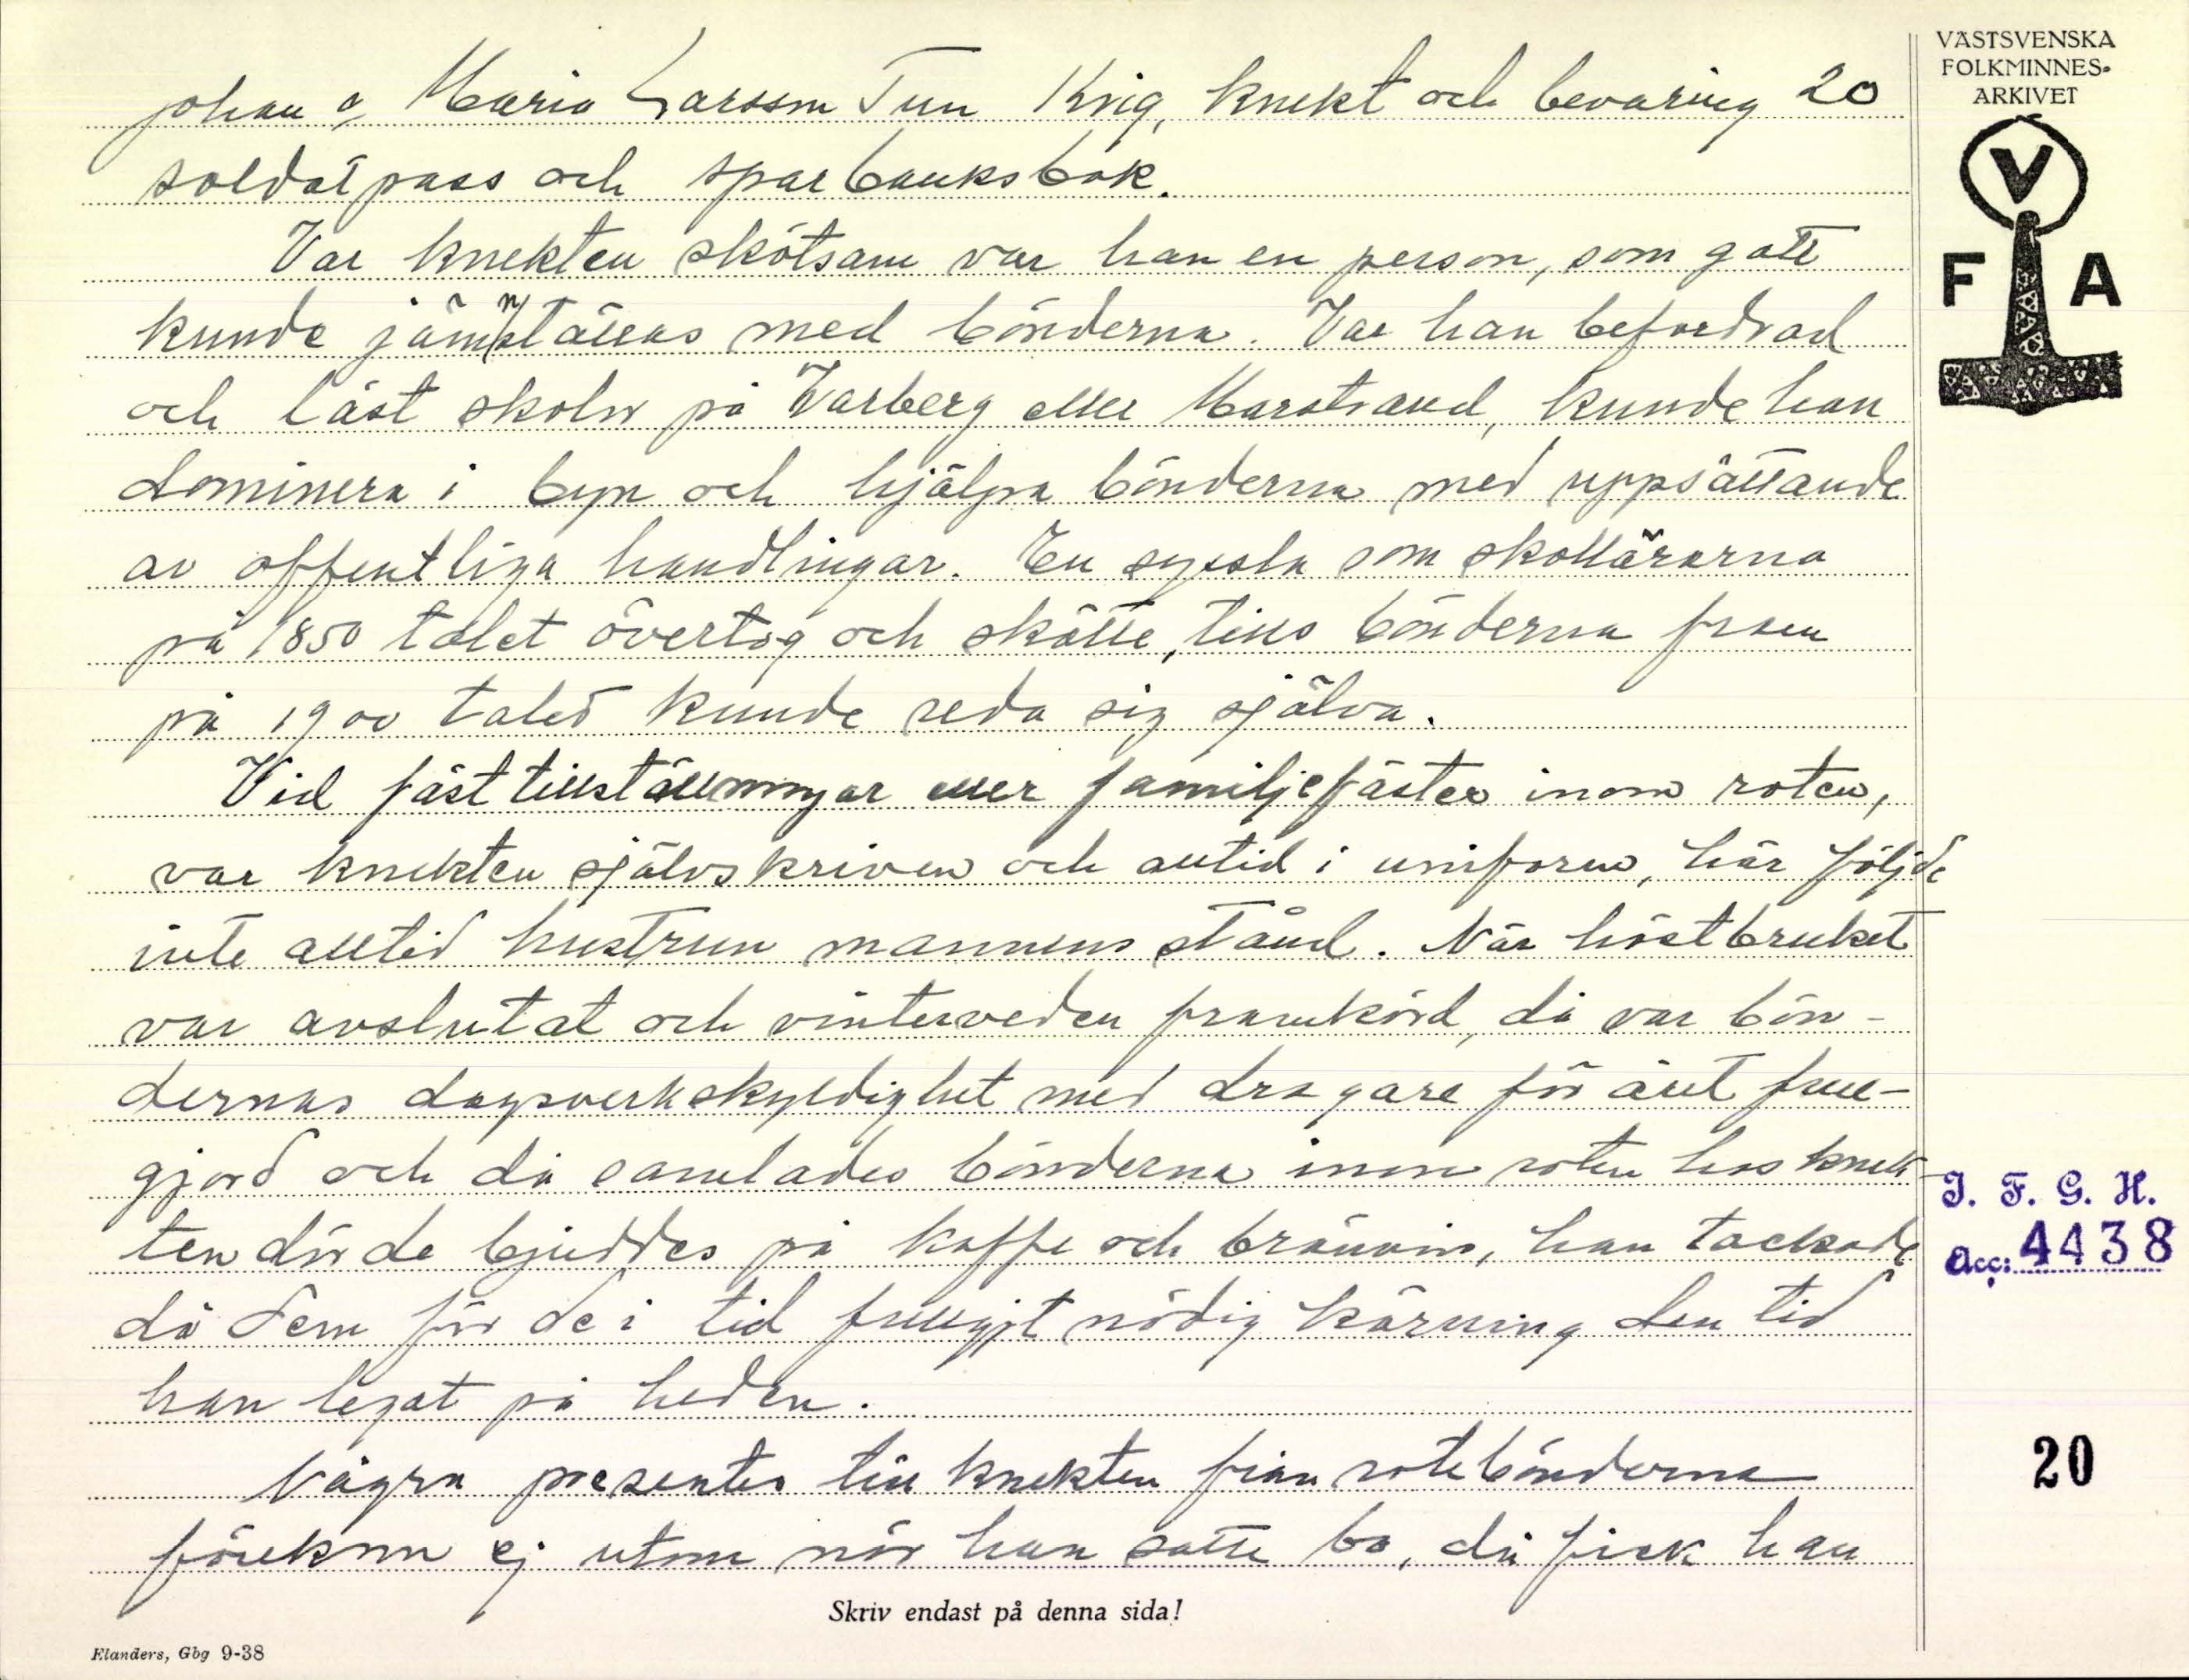 Johan o, Maria Larsson Tun Krig, knekt och bevaring 20
soldatpass och sparbanksbok.
Var knekten skötsam var han en person, som gott
kunde jämnställas med bönderna. Var han befordrad
och läst skolor på Varberg eller Marstrand, kunde han
dominera i byn och hjälpa bönderna med uppsättande
av offentliga handlingar. En syssla som skollärarna
på 1850 talet övertog och skötte, tills bönderna fram
på 1900 talet kunde reda sig själva.
Vid fästtillställningar eller familjefäster inom roten,
var knekten självskriven och alltid i uniform, här följde
inte alltid hustrun mannens stånd. När höstbruket
var avslutat och vinterveden framkörd, då var bön-
dernas dagsverkskyldighet med dragare för året full-
gjord och då samlades bönderna inom roten hos knek
ten där de bjuddes på kaffe och brännvin, han tackade
då dem för de i tid fullgjt nödig körning den tid
han legat på heden.
Några presenter till knekten från rotebönderna
förekom ej utom när han satte bo, då fick han
VÄSTSVENSKA
FOLKMINNES-
ARKIVET
V
F A
I. F. G. H.
Acc: 4438
20
Skriv endast på denna sida!
Elanders, Gbg 9-38